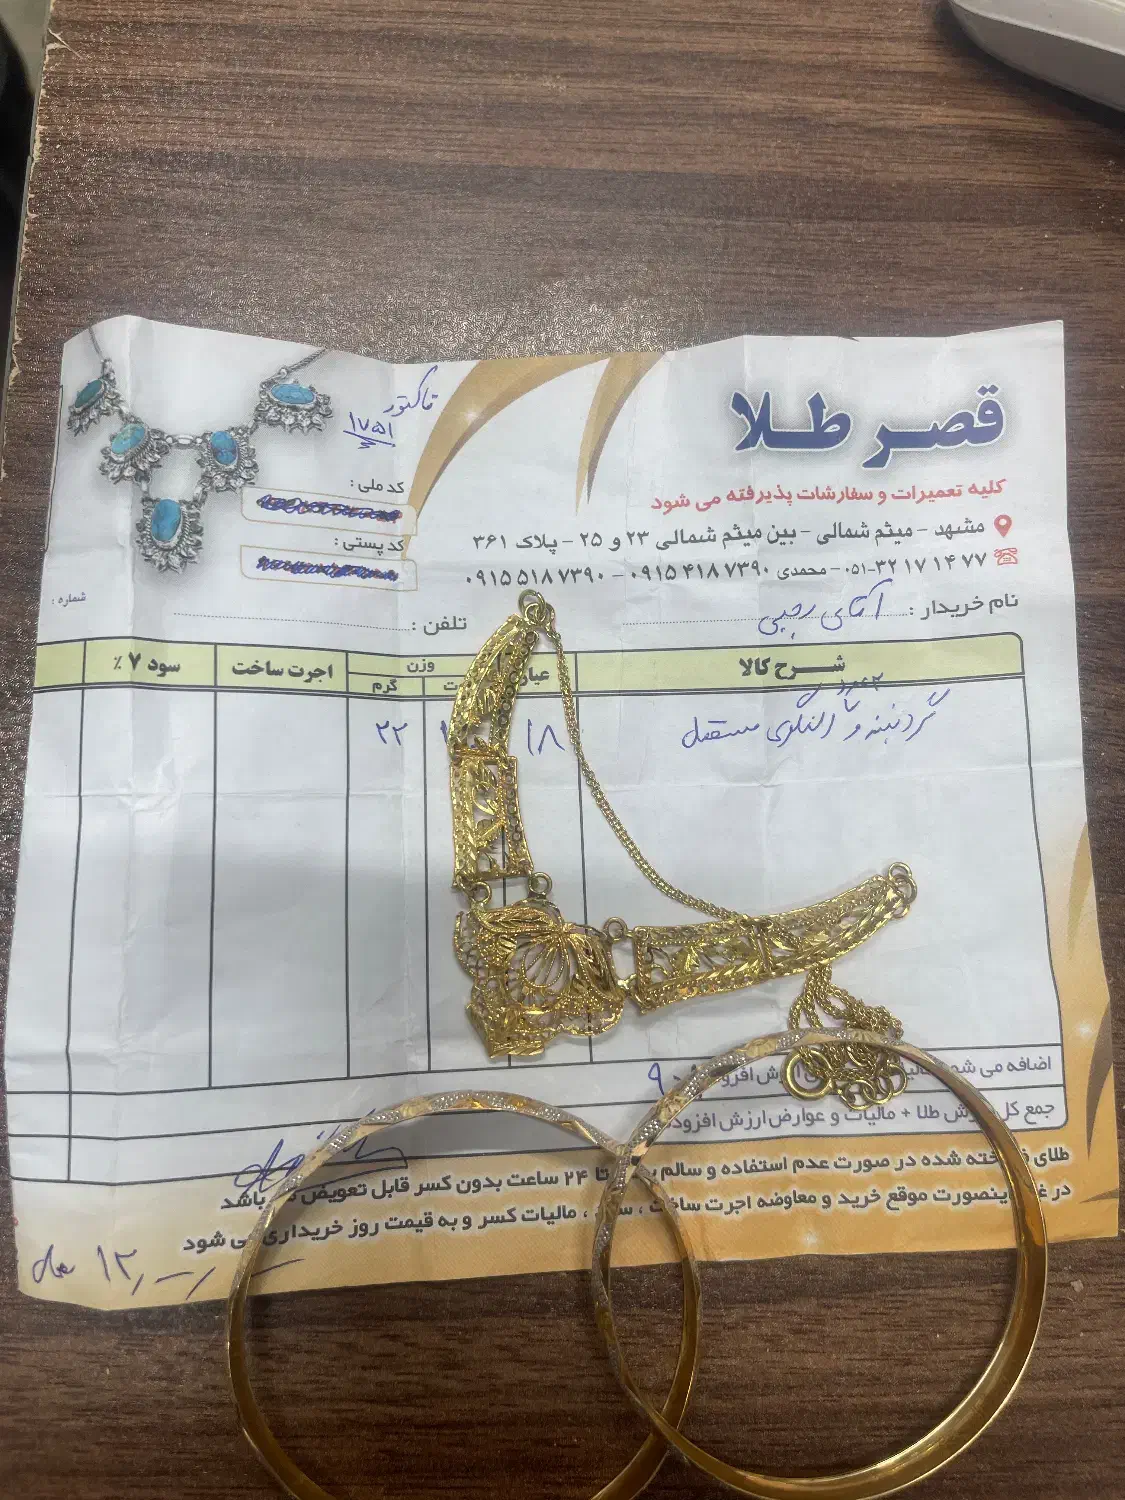 قصر طلا
کلیه تعمیرات و سفارشات پذیرفته می شود
مشهد - میثم شمالی - بین میثم شمالی ۲۳ و ۲۵ - پلاک ۳۶۱
۰۵۱-۳۲ ۱۷ ۱۴ ۷۷ - محمدی ۰۹۱۵ ۴۱۸ ۷۳۹۰ - ۰۹۱۵ ۵۱۸ ۷۳۹۰
فاکتور
۱۷۵۱
کد ملی :
کد پستی :
شماره :
نام خریدار : آقای رجبی تلفن :
شرح کالا عیار وزن گرم اجرت ساخت سود ۷ ٪
گردنبند و النگوی مستعمل ۱۸ ۲۲
اضافه می شود
جمع کل ش طلا + مالیات و عوارض ارزش افزوده
طلای خته شده در صورت عدم استفاده و سالم تا ۲۴ ساعت بدون کسر قابل تعویض باشد
در غ اینصورت موقع خرید و معاوضه اجرت ساخت ، ، مالیات کسر و به قیمت روز خریداری می شود